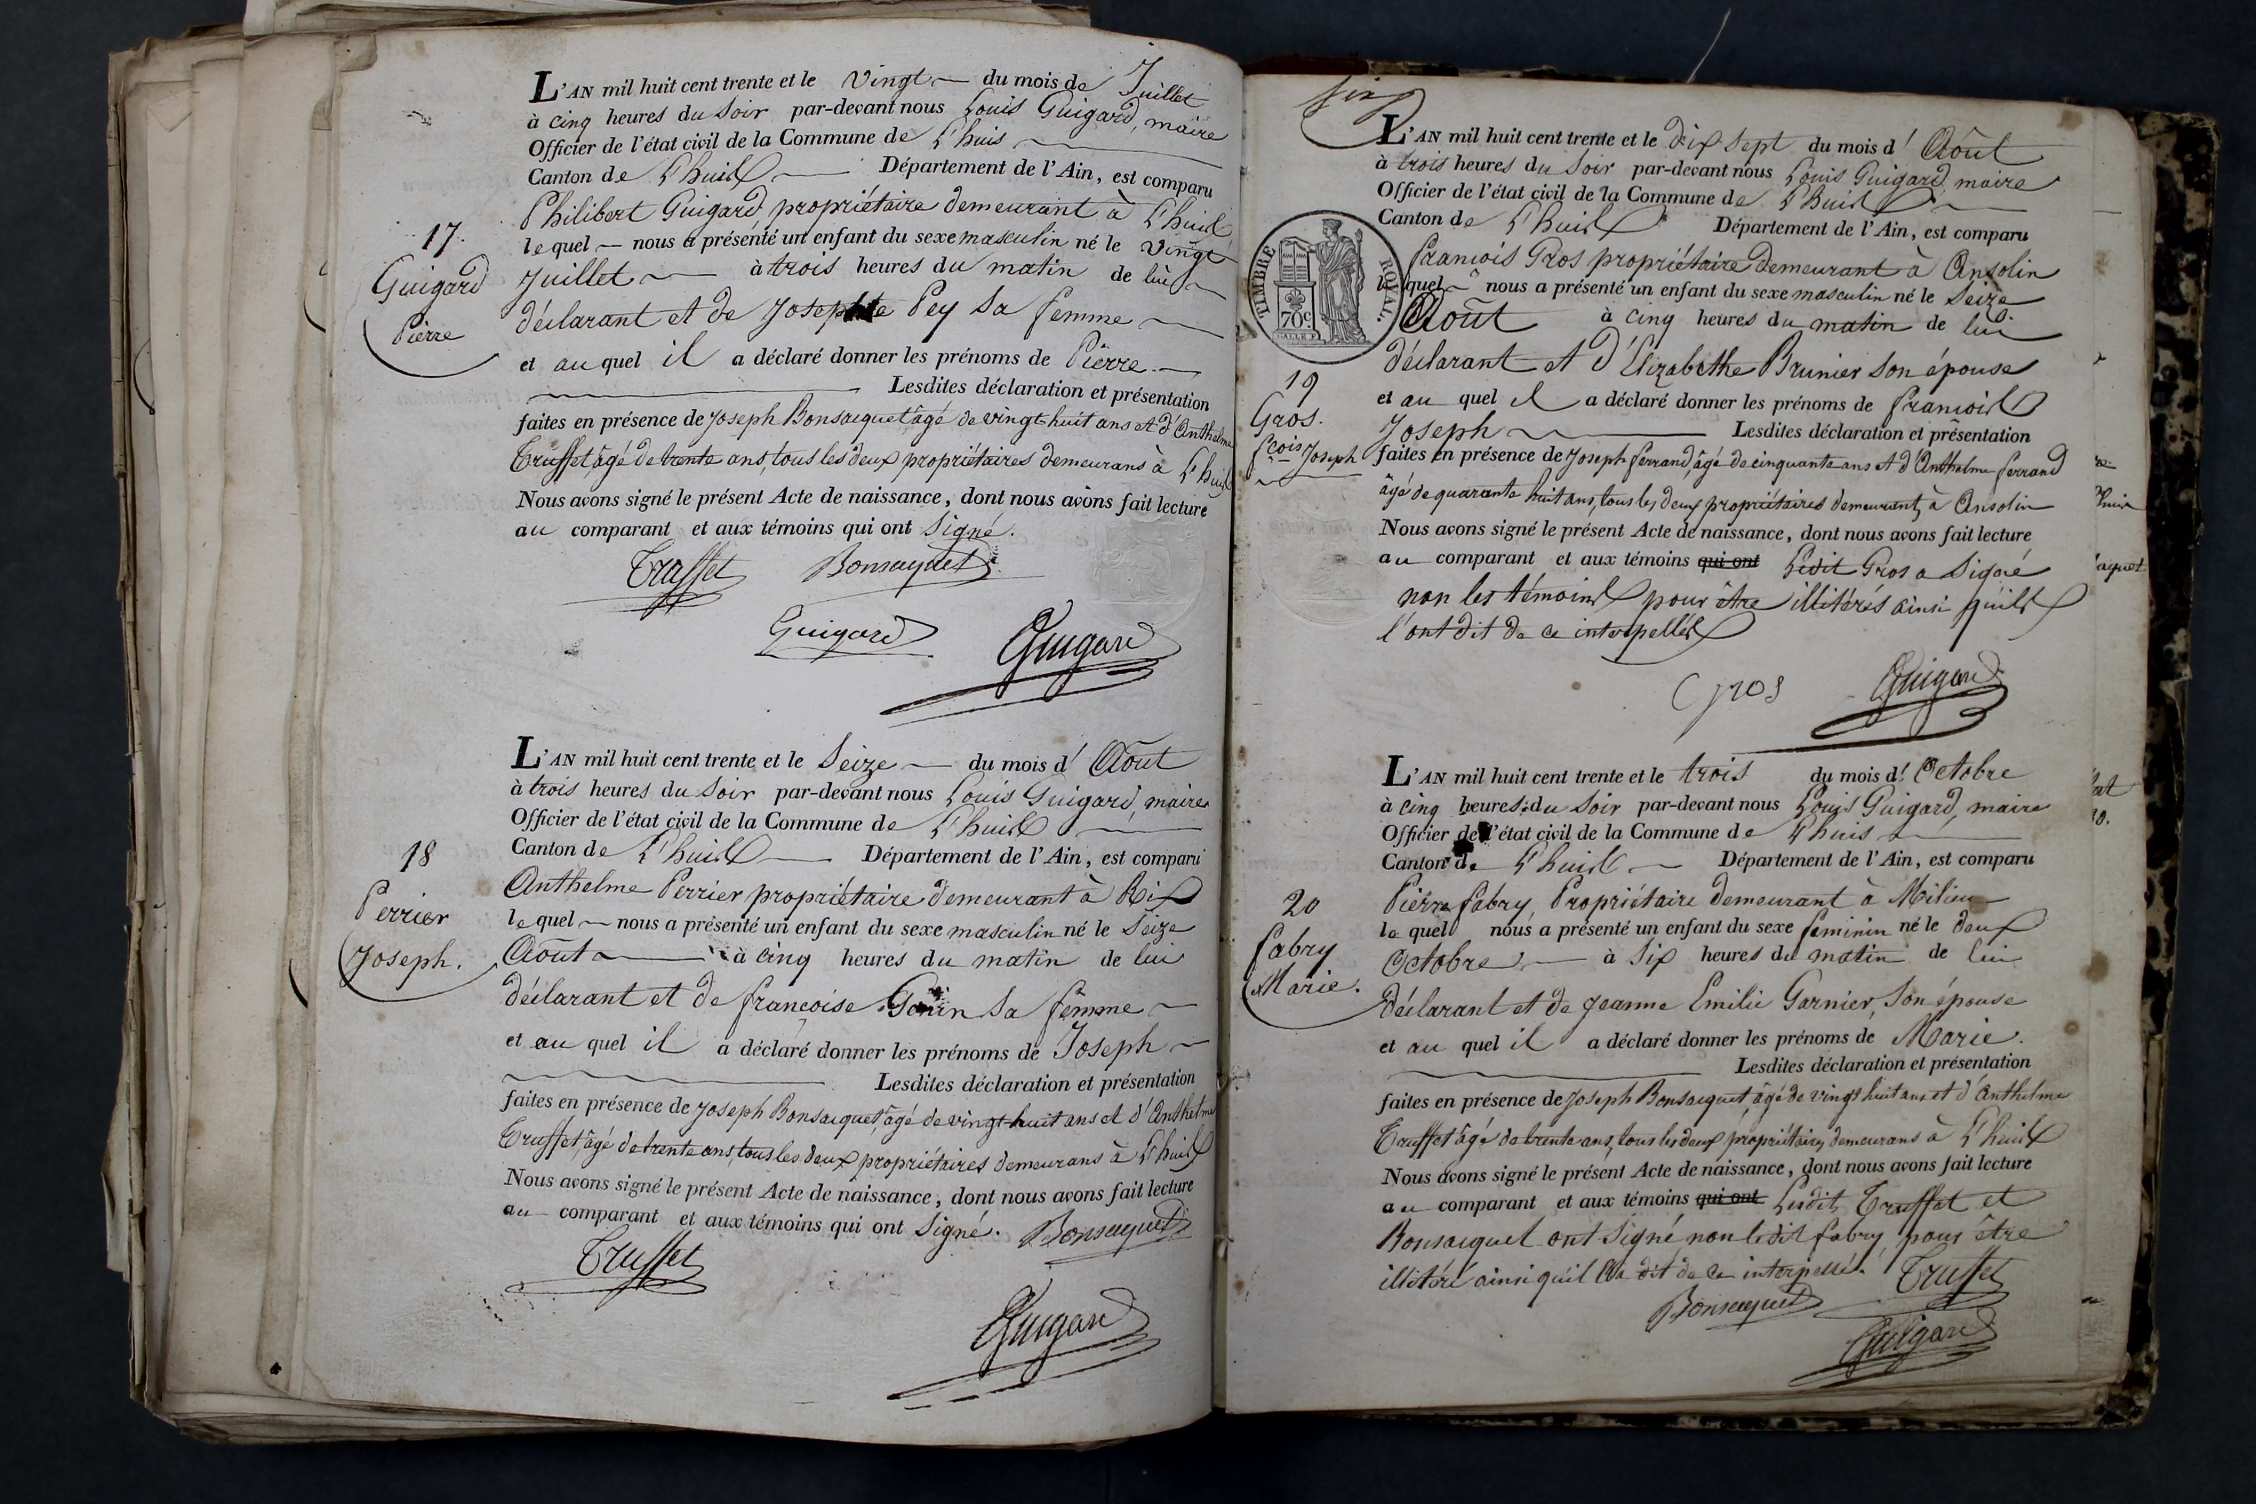 L'AN mil huit cent trente et le vingt du mois de Juillet
à cinq heures du Soir par-devant nous Louis Guigard, maire
Officier de l'état civil de la Commune de L'huis
Canton de L'huis Département de l'Ain, est comparu
Philibert Guigard, propriétaire demeurant à L'huis
le quel nous a présenté un enfant du sexe masculin né le vingt
Juillet à trois heures du matin de lui
déclarant et de Josephte Pey sa femme
et au quel il a déclaré donner les prénoms de Pierre.
Lesdites déclaration et présentation
faites en présence de Joseph Bonsacquet âgé de vingt-huit ans et d'Anthelme
Truffet, âgé de trente ans, tous les deux propriétaires demeurans à L'huis
Nous avons signé le présent Acte de naissance, dont nous avons fait lecture
au comparant et aux témoins qui ont Signé.
17.
Guigard
Pierre
Truffet Bonsacquet
Guigard Guigard
L'AN mil huit cent trente et le Seize du mois d' Août
à trois heures du Soir par-devant nous Louis Guigard, maire
Officier de l'état civil de la Commune de L'huis
Canton de L'huis Département de l'Ain, est comparu
Anthelme Perrier propriétaire demeurant à Rix
le quel nous a présenté un enfant du sexe masculin né le Seize
Août à cinq heures du matin de lui
déclarant et de françoise Gonin sa femme
et au quel il a déclaré donner les prénoms de Joseph
Lesdites déclaration et présentation
faites en présence de Joseph Bonsacquet, âgé de vingt-huit ans et d'Anthelme
Truffet, âgé de trente ans, tous les deux propriétaires demeurans à L'huis
Nous avons signé le présent Acte de naissance, dont nous avons fait lecture
au comparant et aux témoins qui ont Signé. Bonsacquet
18
Perrier
Joseph.
Truffet
Guigard
L'AN mil huit cent trente et le dix-sept du mois d' Août
à trois heures du Soir par-devant nous Louis Guigard, maire
Officier de l'état civil de la Commune de L'huis
Canton de L'huis Département de l'Ain, est comparu
françois Gros propriétaire demeurant à Ansolin
le quel nous a présenté un enfant du sexe masculin né le Seize
Août à cinq heures du matin de lui
déclarant et d'Elizabethe Brunier son épouse
et au quel il a déclaré donner les prénoms de françois
Joseph Lesdites déclaration et présentation
faites en présence de Joseph ferrand, âgé de cinquante ans et d'Anthelme ferrand
âgé de quarante huit ans, tous les deux propriétaires demeurant à Ansolin
Nous avons signé le présent Acte de naissance, dont nous avons fait lecture
au comparant et aux témoins qui ont Ledit Gros a Signé
non les témoins pour être illitérés ainsi qu'ils
l'ont dit de ce interpellés
TIMBRE ROYAL.
70c
19
Gros.
fcois Joseph
Gros Guigard
L'AN mil huit cent trente et le trois du mois d' Octobre
à cinq heures du Soir par-devant nous Louis Guigard, maire
Officier de l'état civil de la Commune de L'huis
Canton de L'huis Département de l'Ain, est comparu
Pierre fabry, Propriétaire demeurant à Milieu
le quel nous a présenté un enfant du sexe feminin né le deux
Octobre à Six heures du matin de lui
déclarant et de Jeanne Emilie Garnier, son épouse
et au quel il a déclaré donner les prénoms de Marie.
Lesdites déclaration et présentation
faites en présence de Joseph Bonsacquet, âgé de vingt huit ans et d'Anthelme
Truffet âgé de trente ans, tous les deux propriétaires demeurans à L'huis
Nous avons signé le présent Acte de naissance, dont nous avons fait lecture
au comparant et aux témoins qui ont Lesdits Truffet et
Bonsacquet ont Signé non ledit fabry pour être
illitéré ainsi qu'il l'a dit de ce interpellé.
20
fabry
Marie.
Truffet
Bonsacquet
Guigard